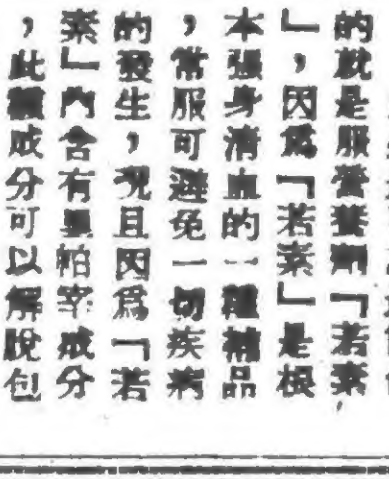 的就是服營養劑「若素
」，因爲「若素」是根
本强身清血的一種補品
，常服可避免一切疾病
的發生，况且因爲「若
素」內含有畢帕宰成分
，此種成分可以解脫包